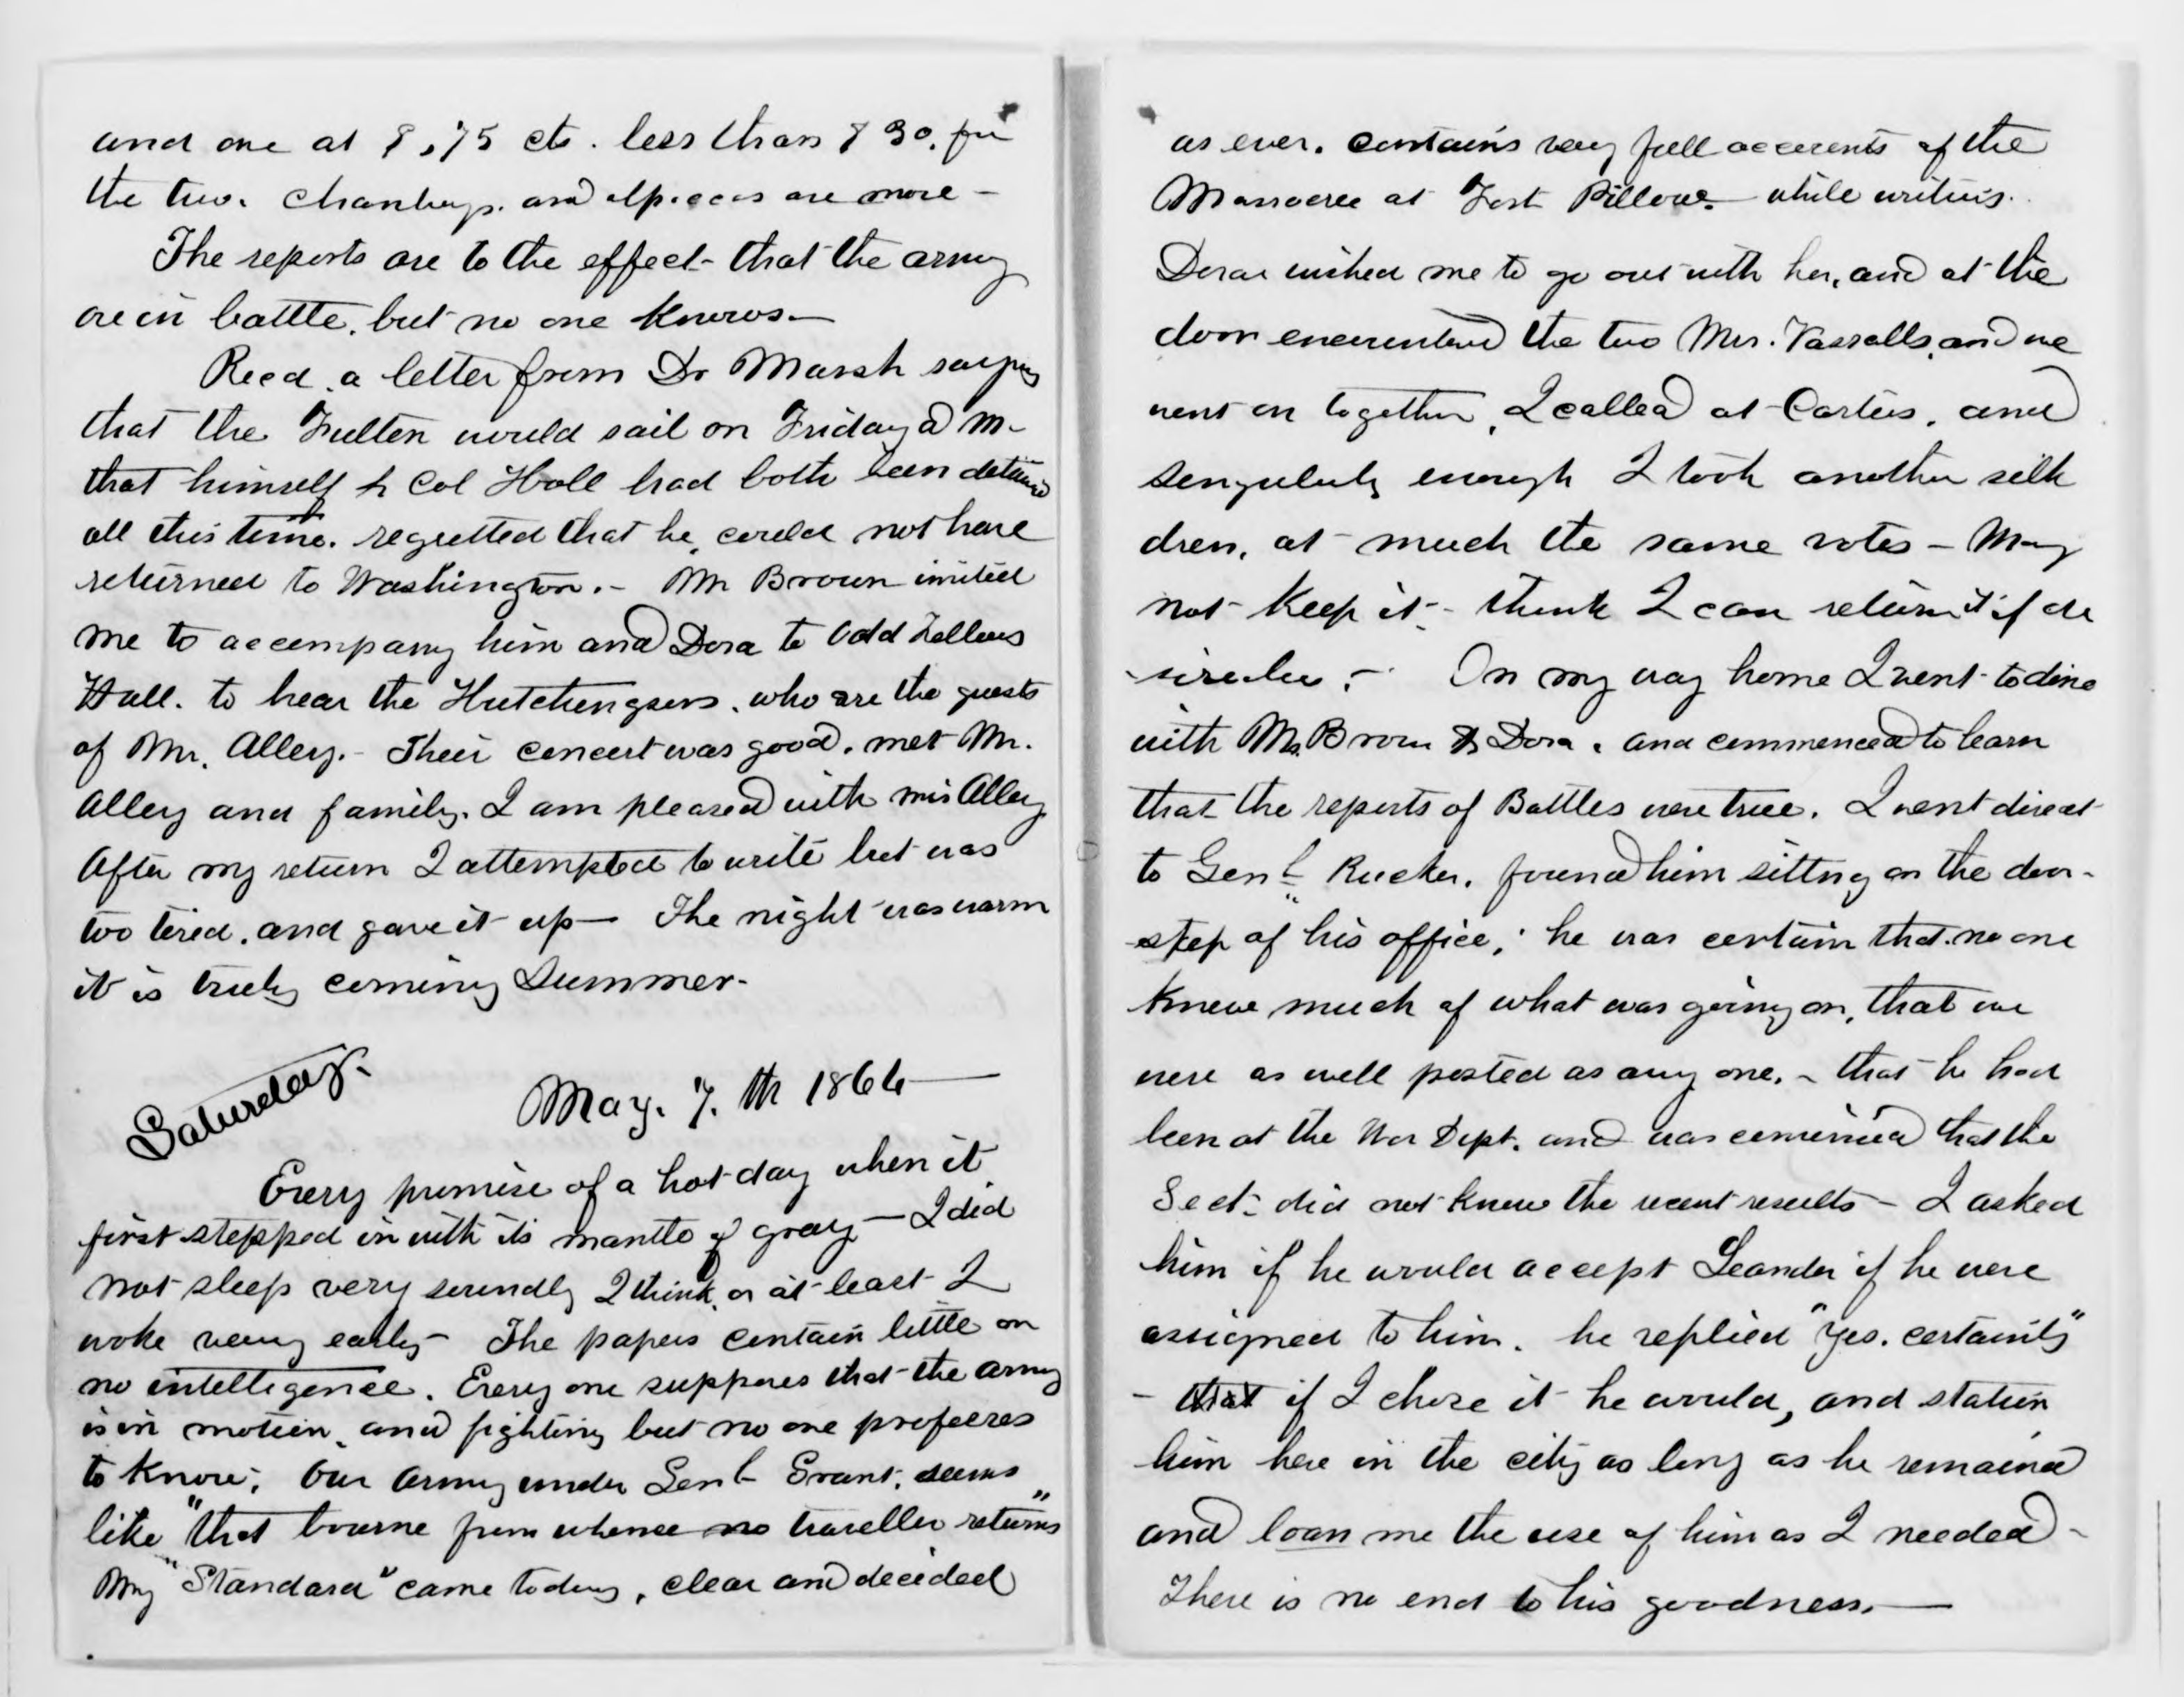 and one at $ .75 cts. less than $ 30. for
the two. and are more -
The reports are to the effect - that the army
are in battle, but no one knows -
Recd. a letter from Dr Marsh saying
that the Fulton would sail on Friday a m-
that himself & Col Hall had both been detained
all this time. regretted that he could not have
returned to Washington. - Mr Brown invited
me to accompany him and Dora to Odd Fellows
Hall. to hear the Hutchingsons. who are the guests
of Mr. Alley. - Their concert was good. met Mr.
Alley and family. I am pleased with mis Alley
After my return I attempted to write but was
too tired. and gave it up - The night was warm
it is truly coming Summer -
Saturday.
May. 7. th 1864 -
Every promise of a hot day when it
first stepped in with its mantle of gray - I did
not sleep very soundly I think, or at least I
woke very early - The papers contain little or
no intelligence. Every one supposes that the army
is in motion, and fighting but no one professes
to know. Our army under Genl Grant, seems
like "that bourne from whence no traveller returns"
My "Standard" came today, clear and decided
as ever. contains very full accounts of the
Massacree at Fort Pillow. - while writing.
Dora wished me to go out with her, and at the
door encountered the two Mrs. Vassalls, and we
went on together, I called at and
singularly enough I took another silk
dress, at much the same rates - May
not keep it - think I can return it if de
sirable. - On my way home I went to dine
with Mr. Brown & Dora. and commenced to learn
that the reports of Battles were true. I went direct
to Genl Rucker. found him sitting on the door-
step of his office, he was certain that no one
knew much of what was going on, that we
were as well posted as any one. - that he had
been at the War Dept. and was convinced that the
Sect. did not know the recent results - I asked
him if he would accept Leander if he were
assigned to him. he replied "Yes. certainly"
- that if I chose it he would, and station
him here in the city as long as he remained
and loan me the use of him as I needed -
There is no end to his goodness. -